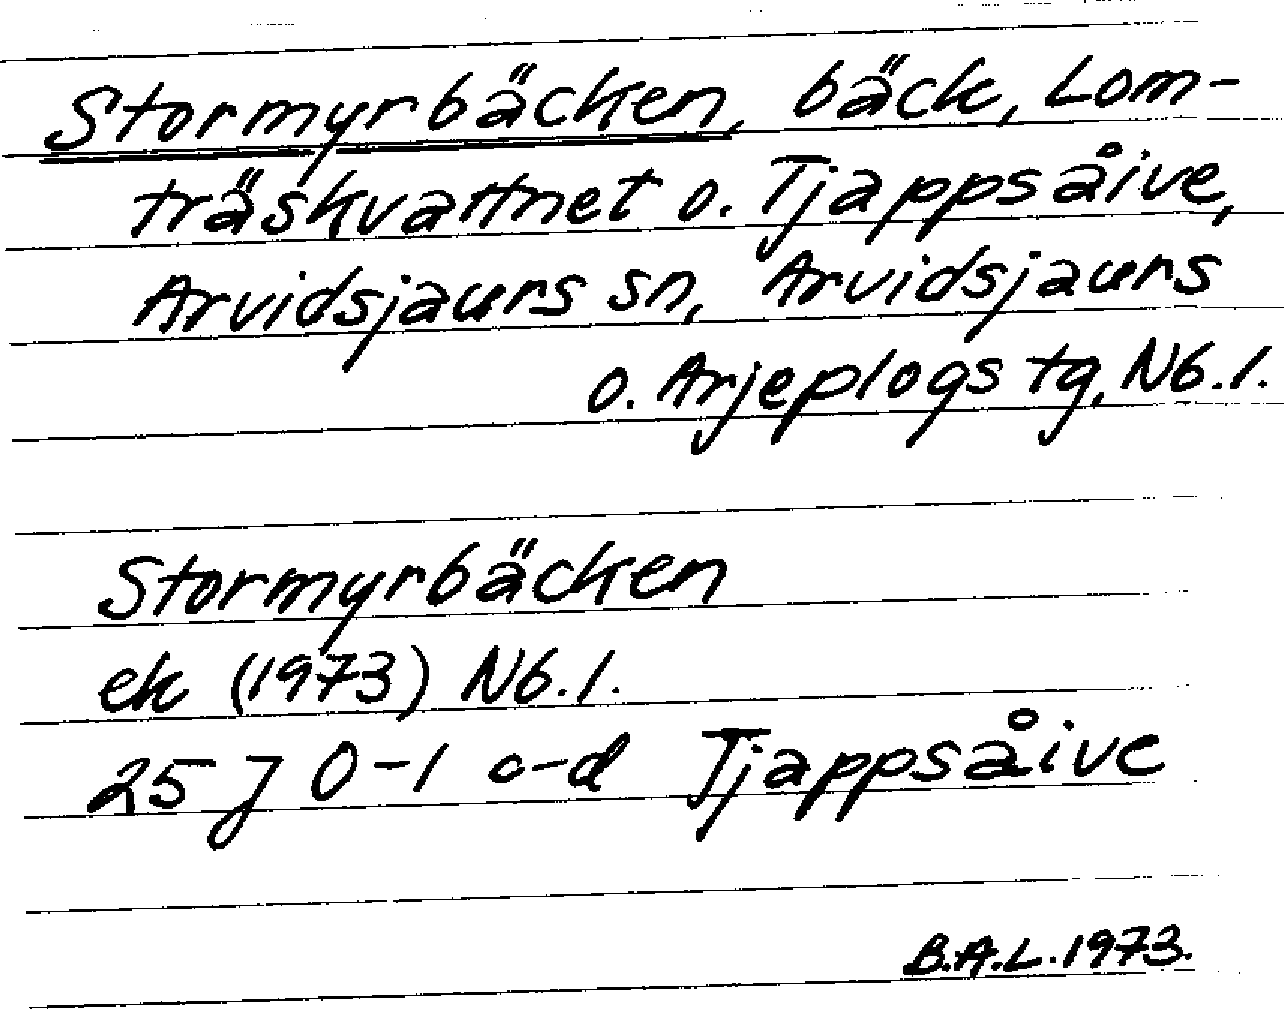 Stormyrbäcken, bäck, Lom-
träskvattnet o. Tjappsåive,
Arvidsjaurs sn, Arvidsjaurs
o. Arjeplogs tg, Nb.l.
Stormyrbäcken
ek (1973) Nb.l.
25 J 0-1 c-d Tjappsåive
B.A.L. 1973.